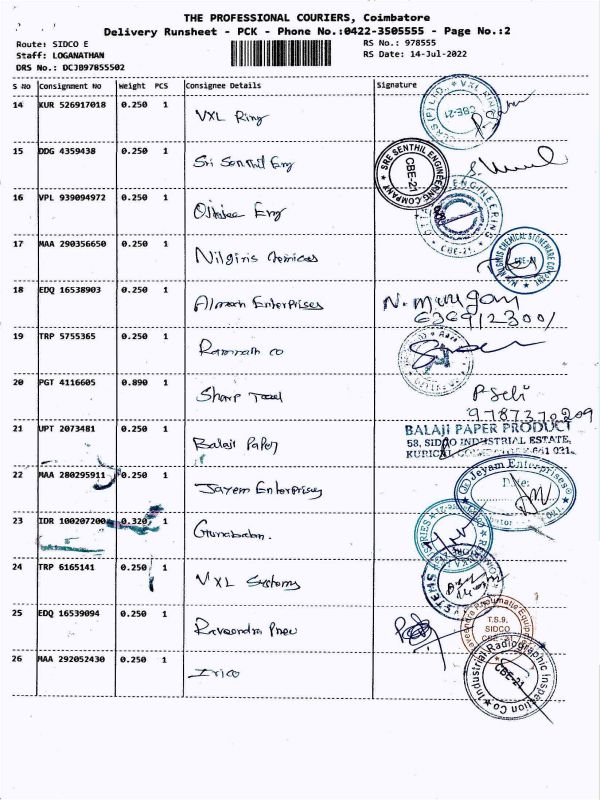 THE PROFESSIONAL COURIERS, Coimbatore
Delivery Runsheet - PCK - Phone No.:0422-3505555 - Page No.:2
Route: SIDCO E
RS No.: 978555
Staff: LOGANATHAN
RS Date: 14-Jul-2022
DRS No.: DC3B97855502
S No Consignment No Weight PCS Consignee Details Signature
14 KUR 526917018 0.250 1 VXL Ring
15 DDG 4359438 0.250 1 Sri Senthil Eng
SRE SENTHIL ENGINEERING COMPANY CBE-21
16 VPL 939094972 0.250 1 Eng
ENGINEERING CBE-21
17 MAA 290356650 0.250 1 Nilgiris Chemicals
NILGIRIS CHEMICAL STONEWARE COMPANY
18 EDQ 16538903 0.250 1 Enterprises N. Murugan
6369123001
19 TRP 5755365 0.250 1 Ramnath co
20 PGT 4116605 0.890 1 Sharp Tool P Selvi
9787370209
21 UPT 2073481 0.250 1 Balaji Paper
BALAJI PAPER PRODUCT
58, SIDCO INDUSTRIAL ESTATE,
22 MAA 280295911 0.250 1 Jayem Enterprises
Jeyam Enterprises
Date:
23 IDR 100207200 0.320 1 Gunabalan.
24 TRP 6165141 0.250 1 VXL Systems
25 EDQ 16539094 0.250 1 Raveendra Pneu
Raveendra Pneumatic Equip
T.S.9.
SIDCO
26 MAA 292052430 0.250 1 Irico
Industrial Radiographic Inspection Co
CBE-21